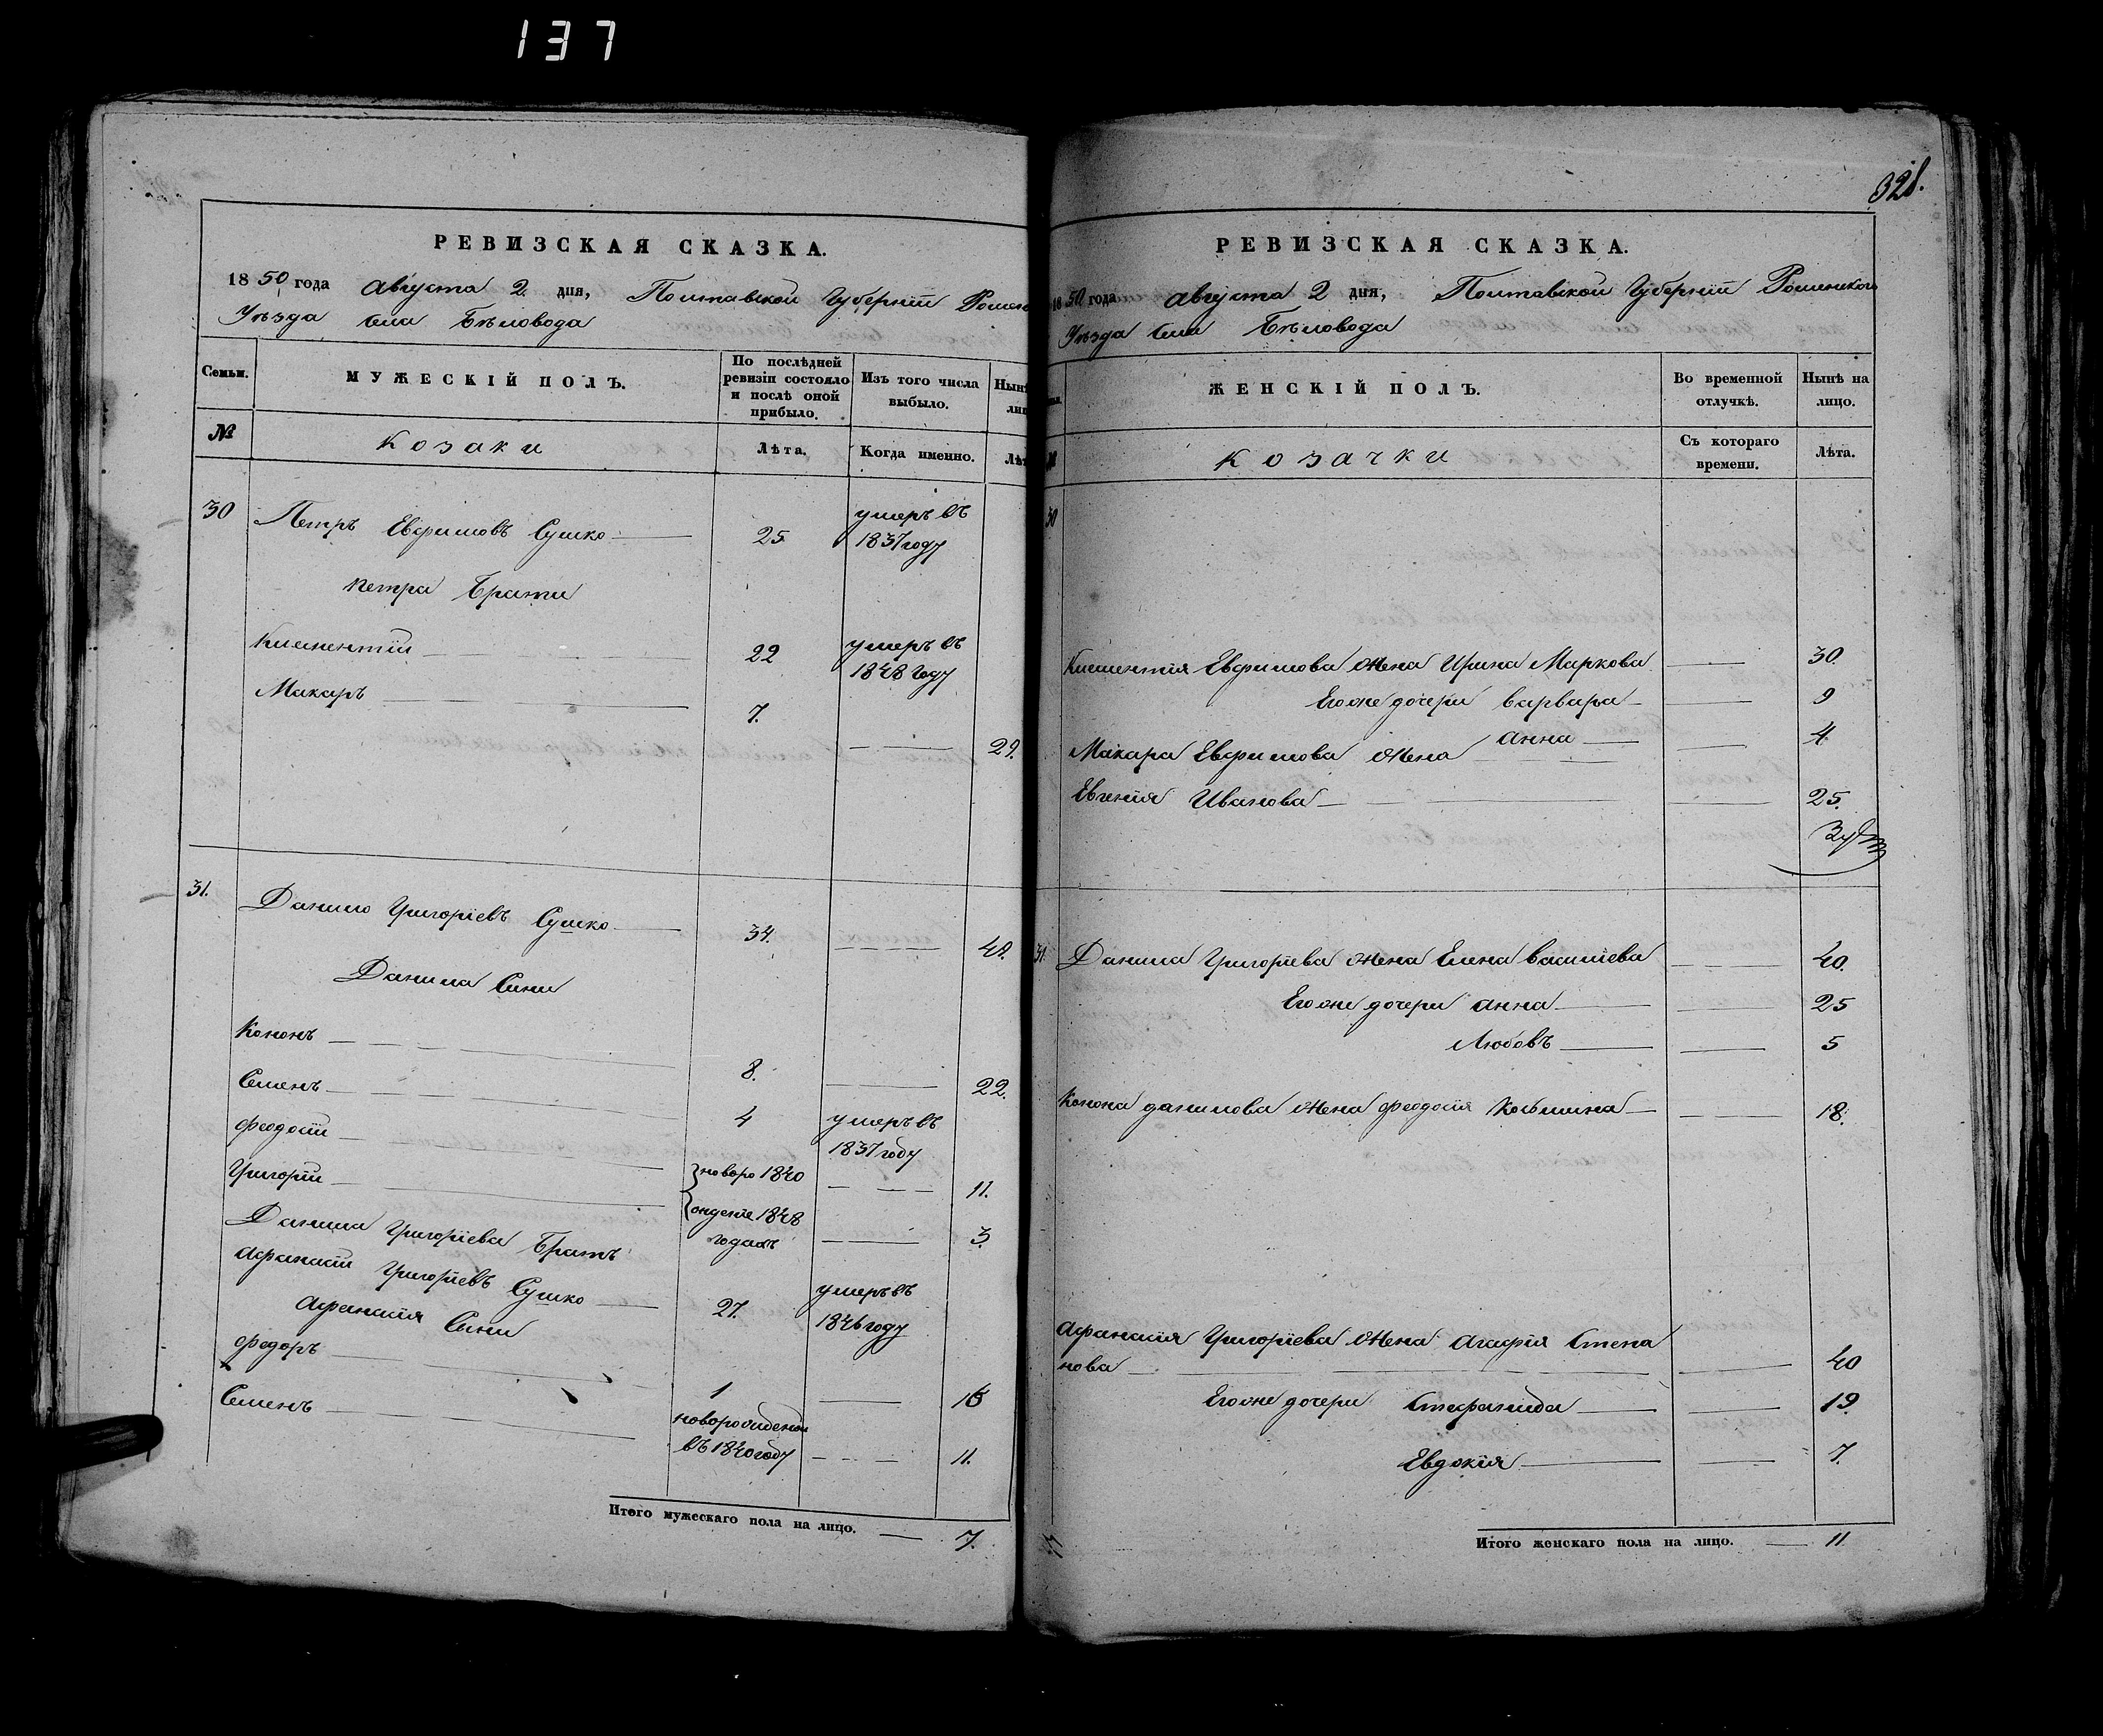 137
РЕВИЗСКАЯ СКАЗКА.
1850 года Августа 2 дня, Полтавской Губерніи Роменс
Уѣзда Села Бѣловода
Семьи.
МУЖЕСКІЙ ПОЛЪ.
По послѣдней ревизіи состояло и послѣ оной прибыло.
Изъ того числа выбыло.
Нынѣ лиц
№
Козаки
Лѣта.
Когда именно.
Лѣт
30 Петръ Евфимовъ Сушко 25 умеръ въ
1837 году
Петра Брати
Климентій 22 умеръ въ
1848 году
Макаръ 7. 29.
31. Данило Григоріевъ Сушко 34. 48.
Данила Сини
Кононъ 8. 22.
Семенъ 4 умеръ въ
1837 году
Феодосій новоро 1840 11.
Григорій жденіе 1848 3.
годахъ
Данила Григоріева Братъ
Афанасій Григоріевъ Сушко 27. умеръ въ
1846 году
Афанасія Сини
Федоръ 1 15
Семенъ новорожденъ
въ 1840 году 11.
Итого мужескаго пола на лицо. 7.
321.
РЕВИЗСКАЯ СКАЗКА.
1850 года Августа 2 дня, Полтавской Губерніи Роменского
Уѣзда Села Бѣловода
ЖЕНСКІЙ ПОЛЪ.
Во временной отлучкѣ.
Нынѣ на лицо.
Козачки
Съ котораго времени.
Лѣта.
30
Климентія Евфимова жена Ирина Маркова 30.
Его же дочери Варвара 9
Анна 4
Макара Евфимова жена
Евгенія Иванова 25.
31. Данила Григоріева жена Елена Василіева 40.
Его же дочери Анна 25
Любовъ 5
Конона Данилова жена Феодосія Косьмина 18.
Афанасія Григоріева жена Агафія Степа
нова 40
Его же дочери Стефанида 19.
Евдокія 7.
Итого женскаго пола на лицо. 11